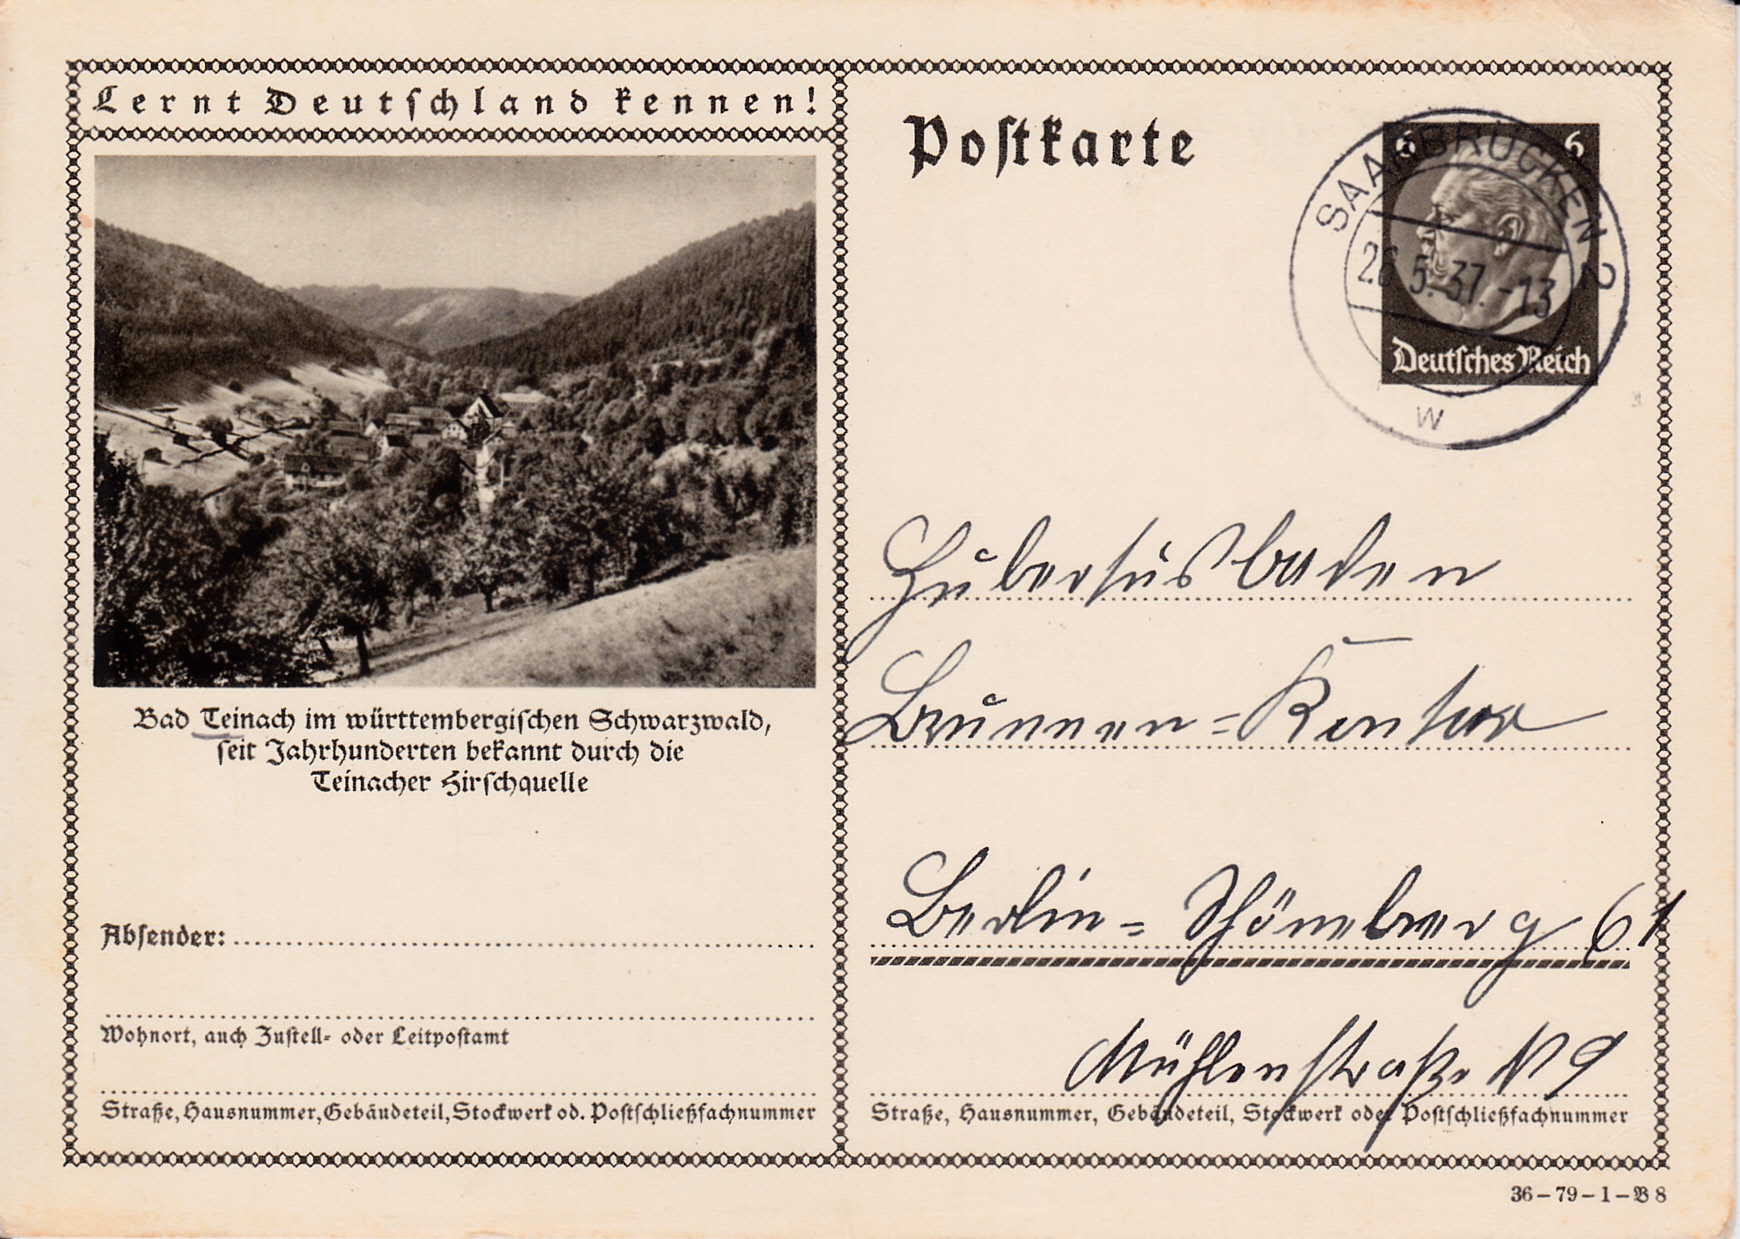 Lernt Deutschland kennen!
Bad Teinach im württembergischen Schwarzwald,
seit Jahrhunderten bekannt durch die
Teinacher Hirschquelle
Absender:
Wohnort, auch Zustell- oder Leitpostamt
Straße, Hausnummer, Gebäudeteil, Stockwerk od. Postschließfachnummer
Postkarte
6 6
Deutsches Reich
SAARBRÜCKEN 2
26.5.37.-13
W
Hubertusbaden
Brunnen=Kontor
Berlin=Schöneberg 61
Mühlenstraße N 9
Straße, Hausnummer, Gebäudeteil, Stockwerk oder Postschließfachnummer
36-79-1-B 8